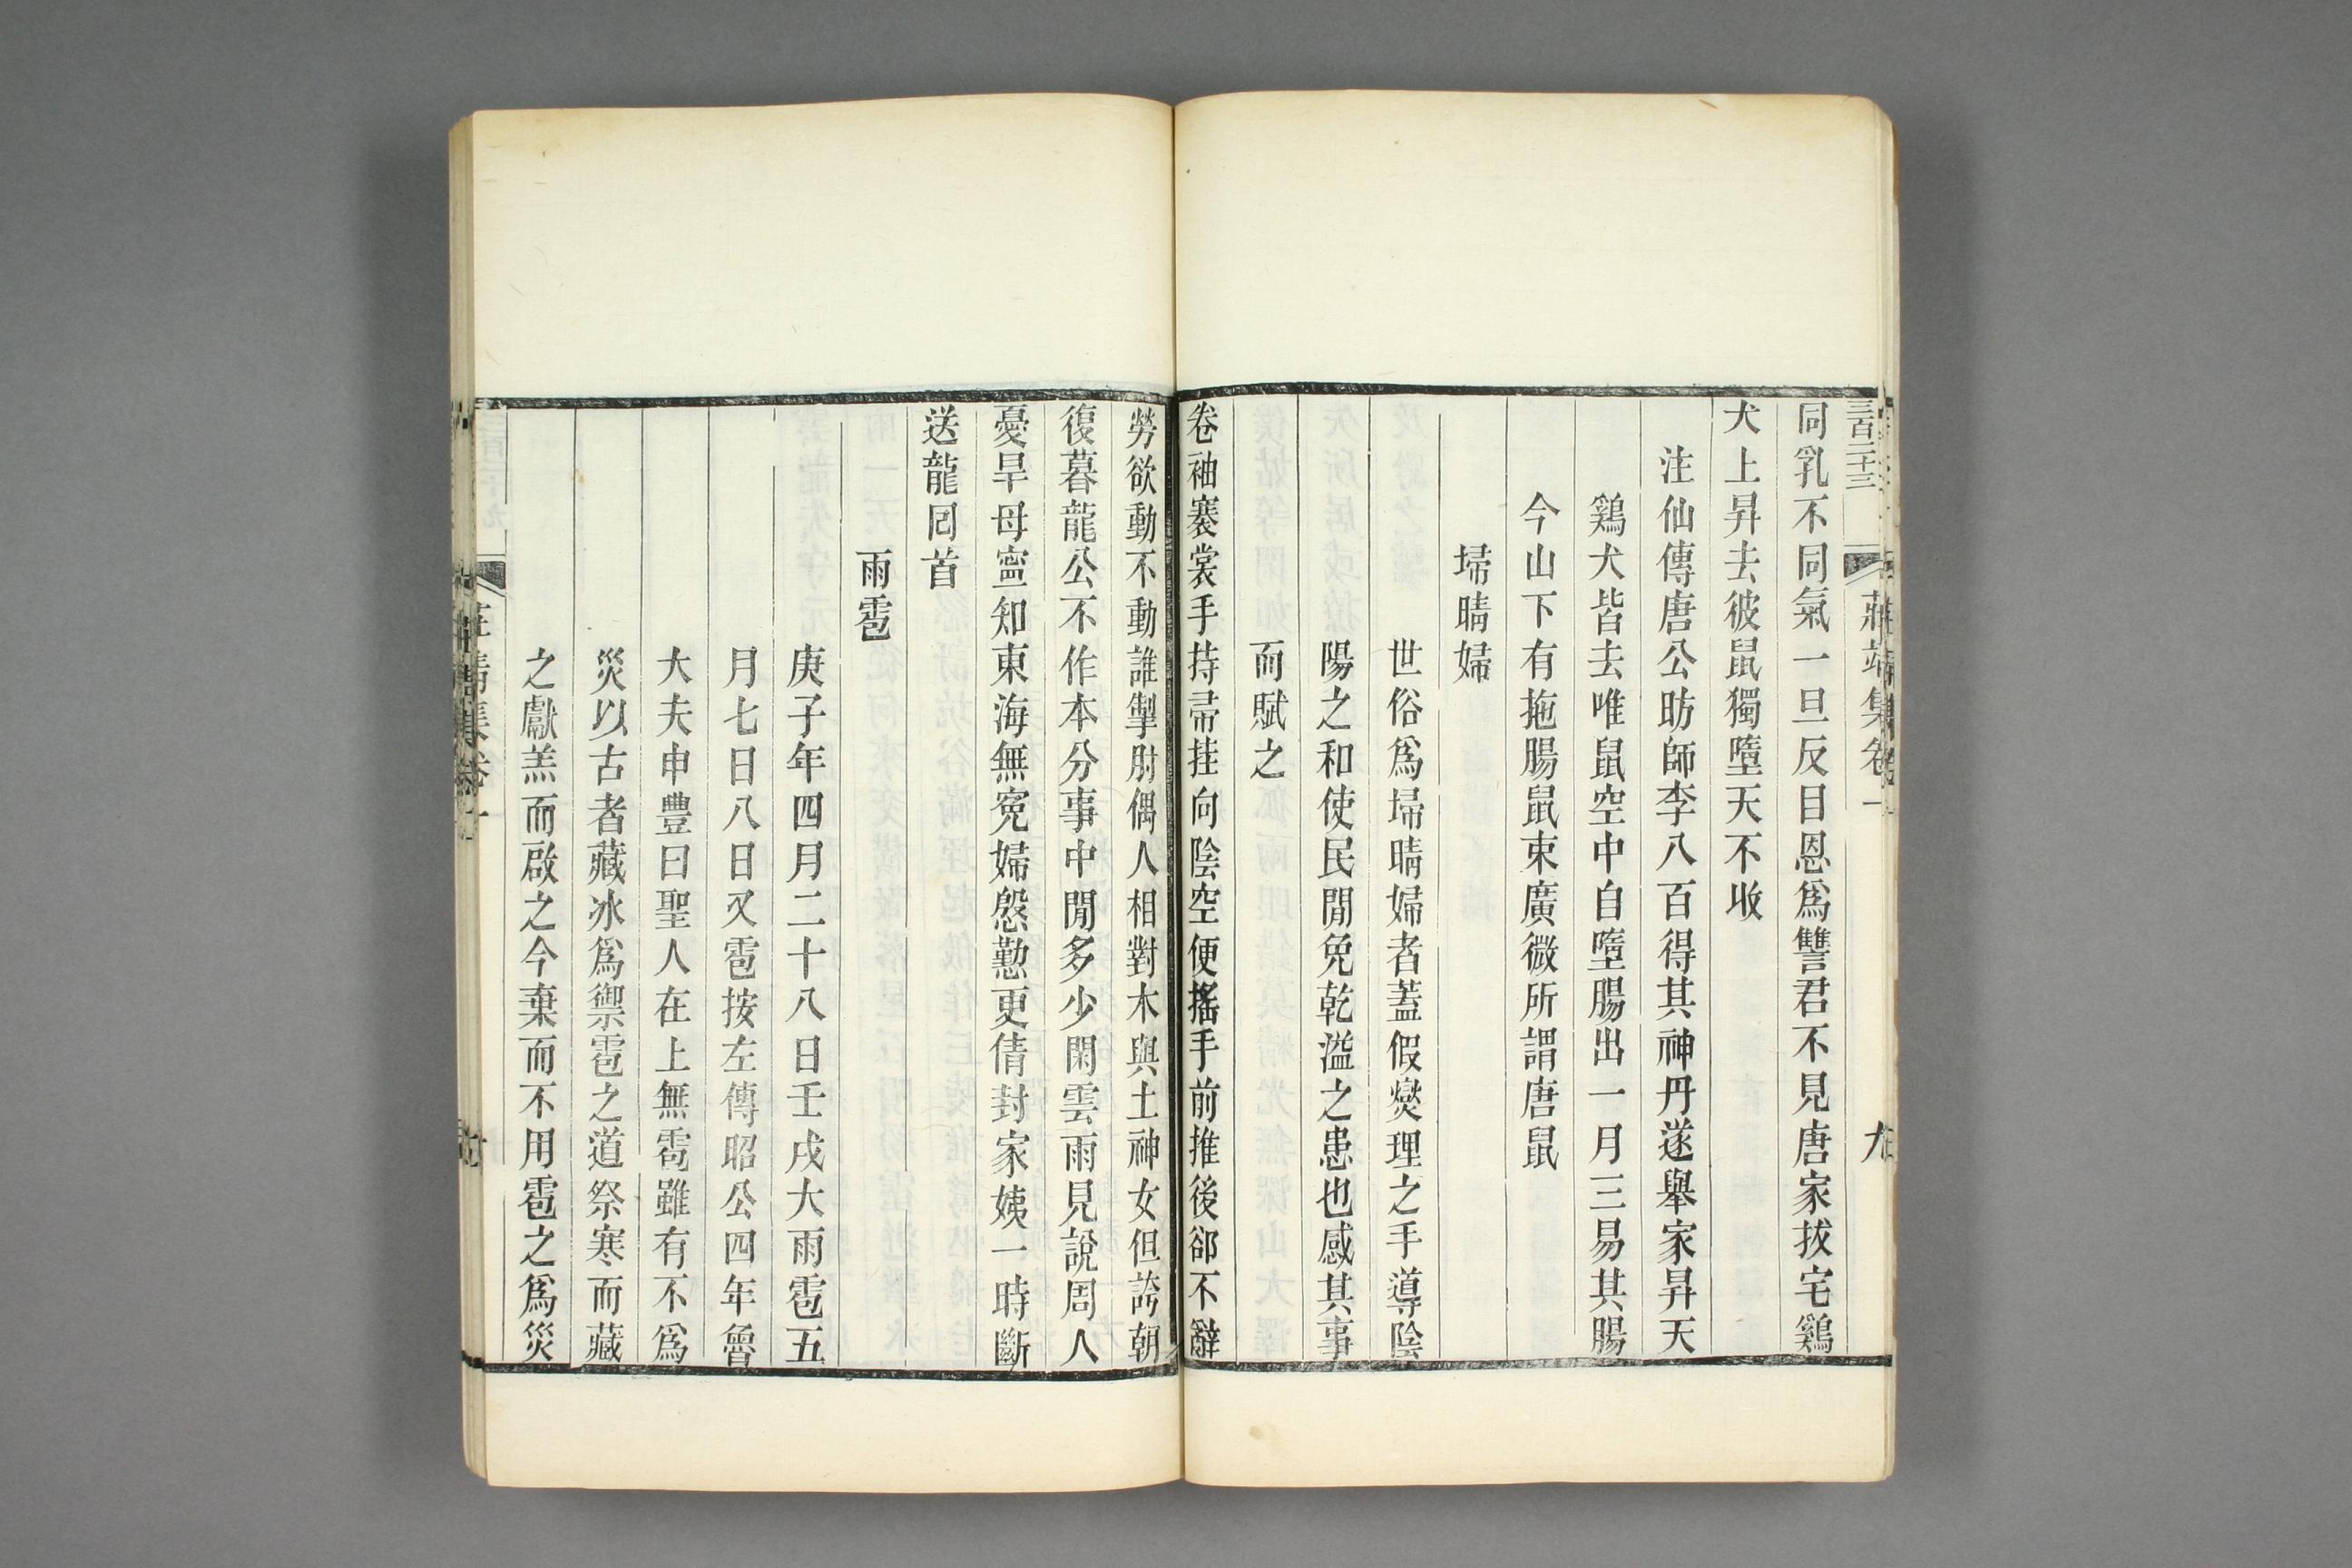 三百二十三
莊靖集卷一
九
同乳不同氣一旦反目恩爲讐君不見唐家拔宅鷄
犬上昇去彼鼠獨墮天不收
注仙傳唐公昉師李八百得其神丹遂舉家昇天
鷄犬皆去唯鼠空中自墮腸出一月三易其腸
今山下有拖腸鼠束廣微所謂唐鼠
埽晴婦
世俗爲埽晴婦者蓋假爕理之手導陰
陽之和使民閒免乾溢之患也感其事
而賦之
卷袖褰裳手持帚挂向陰空便搖手前推後郤不辭
勞欲動不動誰掣肘偶人相對木與土神女但誇朝
復暮龍公不作本分事中閒多少閑雲雨見說周人
憂旱母寍知東海無寃婦慇懃更倩封家姨一時斷
送龍囘首
雨雹
庚子年四月二十八日壬戌大雨雹五
月七日八日又雹按左傳昭公四年魯
大夫申豐曰聖人在上無雹雖有不爲
災以古者藏冰爲禦雹之道祭寒而藏
之獻羔而啟之今棄而不用雹之爲災
莊靖集卷一